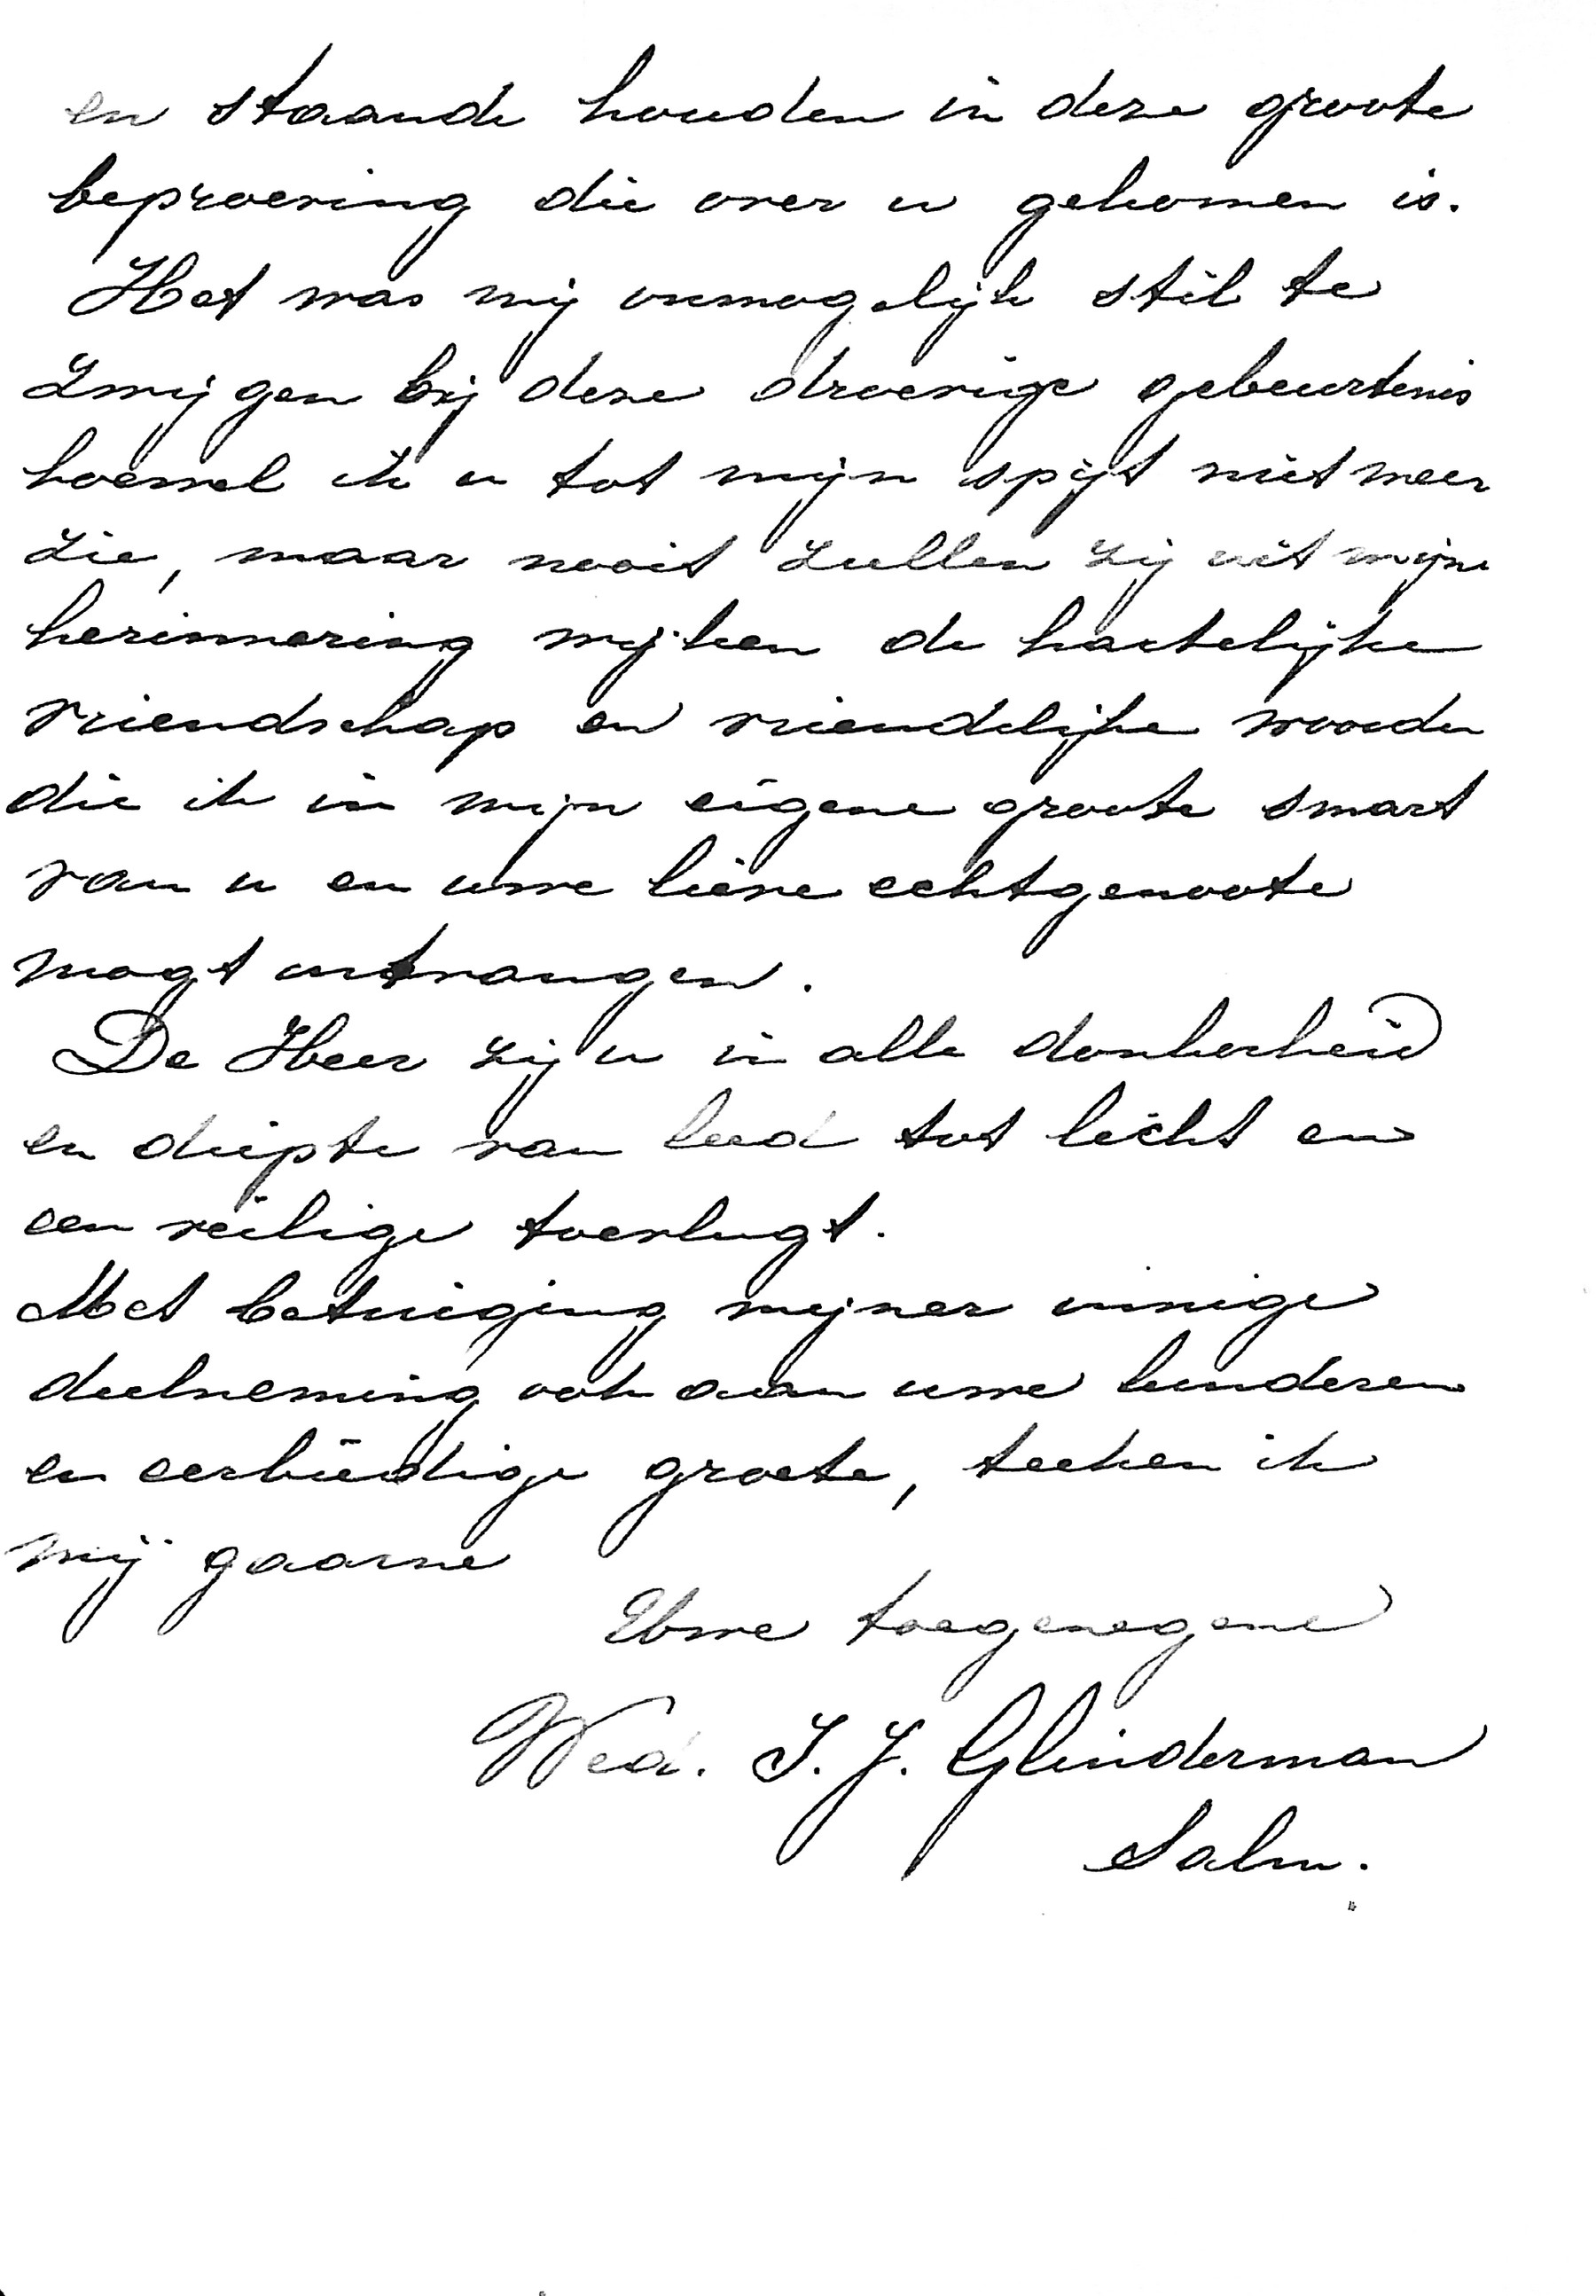 en staande houden in deze groote
beproeving die over u gekomen is.
Het was mij onmogelijk stil te
zwijgen bij deze droevige gebeurtenis
hoewel ik u tot mijn spijt niet meer
zie, maar nooit zullen zij uit mijne
herinnering wijken de hartelijke
vriendschap en vriendelijke woorden
die ik in mijn eigene groote smart
van u en uwe lieve echtgenoote
mogt ontvangen.
De Heer zij u in alle donkerheid
en diepte van leed tot licht en
een veilige toevlugt.
Met betuiging mijner innige
deelneming ook aan uwe kinderen
en eerbiedige groete, teeken ik
mij gaarne
Uwe toegenegene
Wed. J. J. Glinderman
Salm.